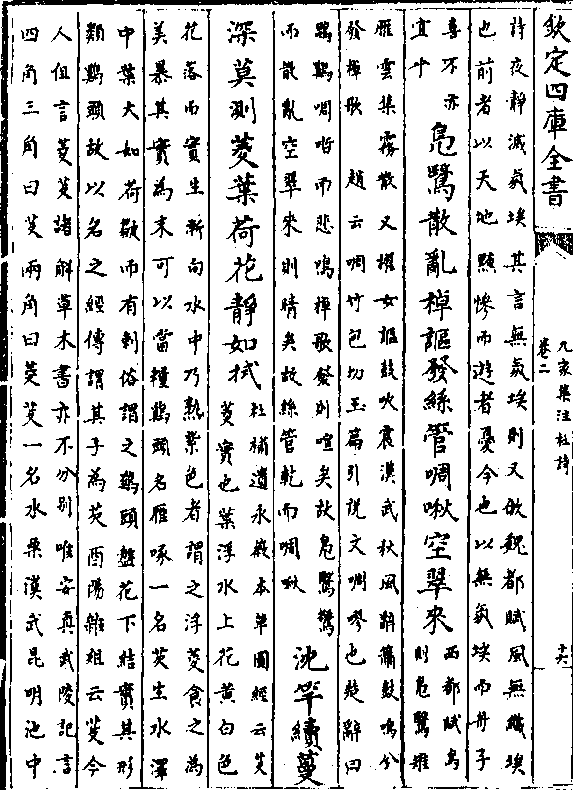 欽定四庫全書
九家集注杜詩
卷二
十六
詩夜靜滅氛埃其言無氛埃則又倣魏都賦風無纖埃
也前者以天地黤慘而遊者憂今也以無氛埃而舟子
喜不亦
宜乎
鳧鷖散亂棹謳發絲管啁啾空翠來
西都賦鳥
則鳧鷖鴻
雁雲集霧散又櫂女謳鼓吹震漢武秋風辭簫鼓鳴兮
發棹歌 趙云啁竹包切玉篇引說文啁嘐也楚辭曰
鵾鷄啁哳而悲鳴棹歌發則喧矣故鳧鷖驚
而散亂空翠來則晴矣故絲管乾而啁啾
沈竿續蔓
深莫測菱葉荷花靜如拭
杜補遺永嚴本草圖經云芰
菱實也葉浮水上花黃白色
花落而實生漸向水中乃熟紫色者謂之浮菱食之為
美暴其實為末可以當糧鷄頭名雁喙一名芡生水澤
中葉大如荷皺而有刺俗謂之鷄頭盤花下結實其形
類鷄頭故以名之經傳謂其子為芡酉陽雜俎云芰今
人但言菱芰諸解草木書亦不分別唯安貞武陵記言
四角三角曰芰兩角曰菱芰一名水栗漢武昆明池中